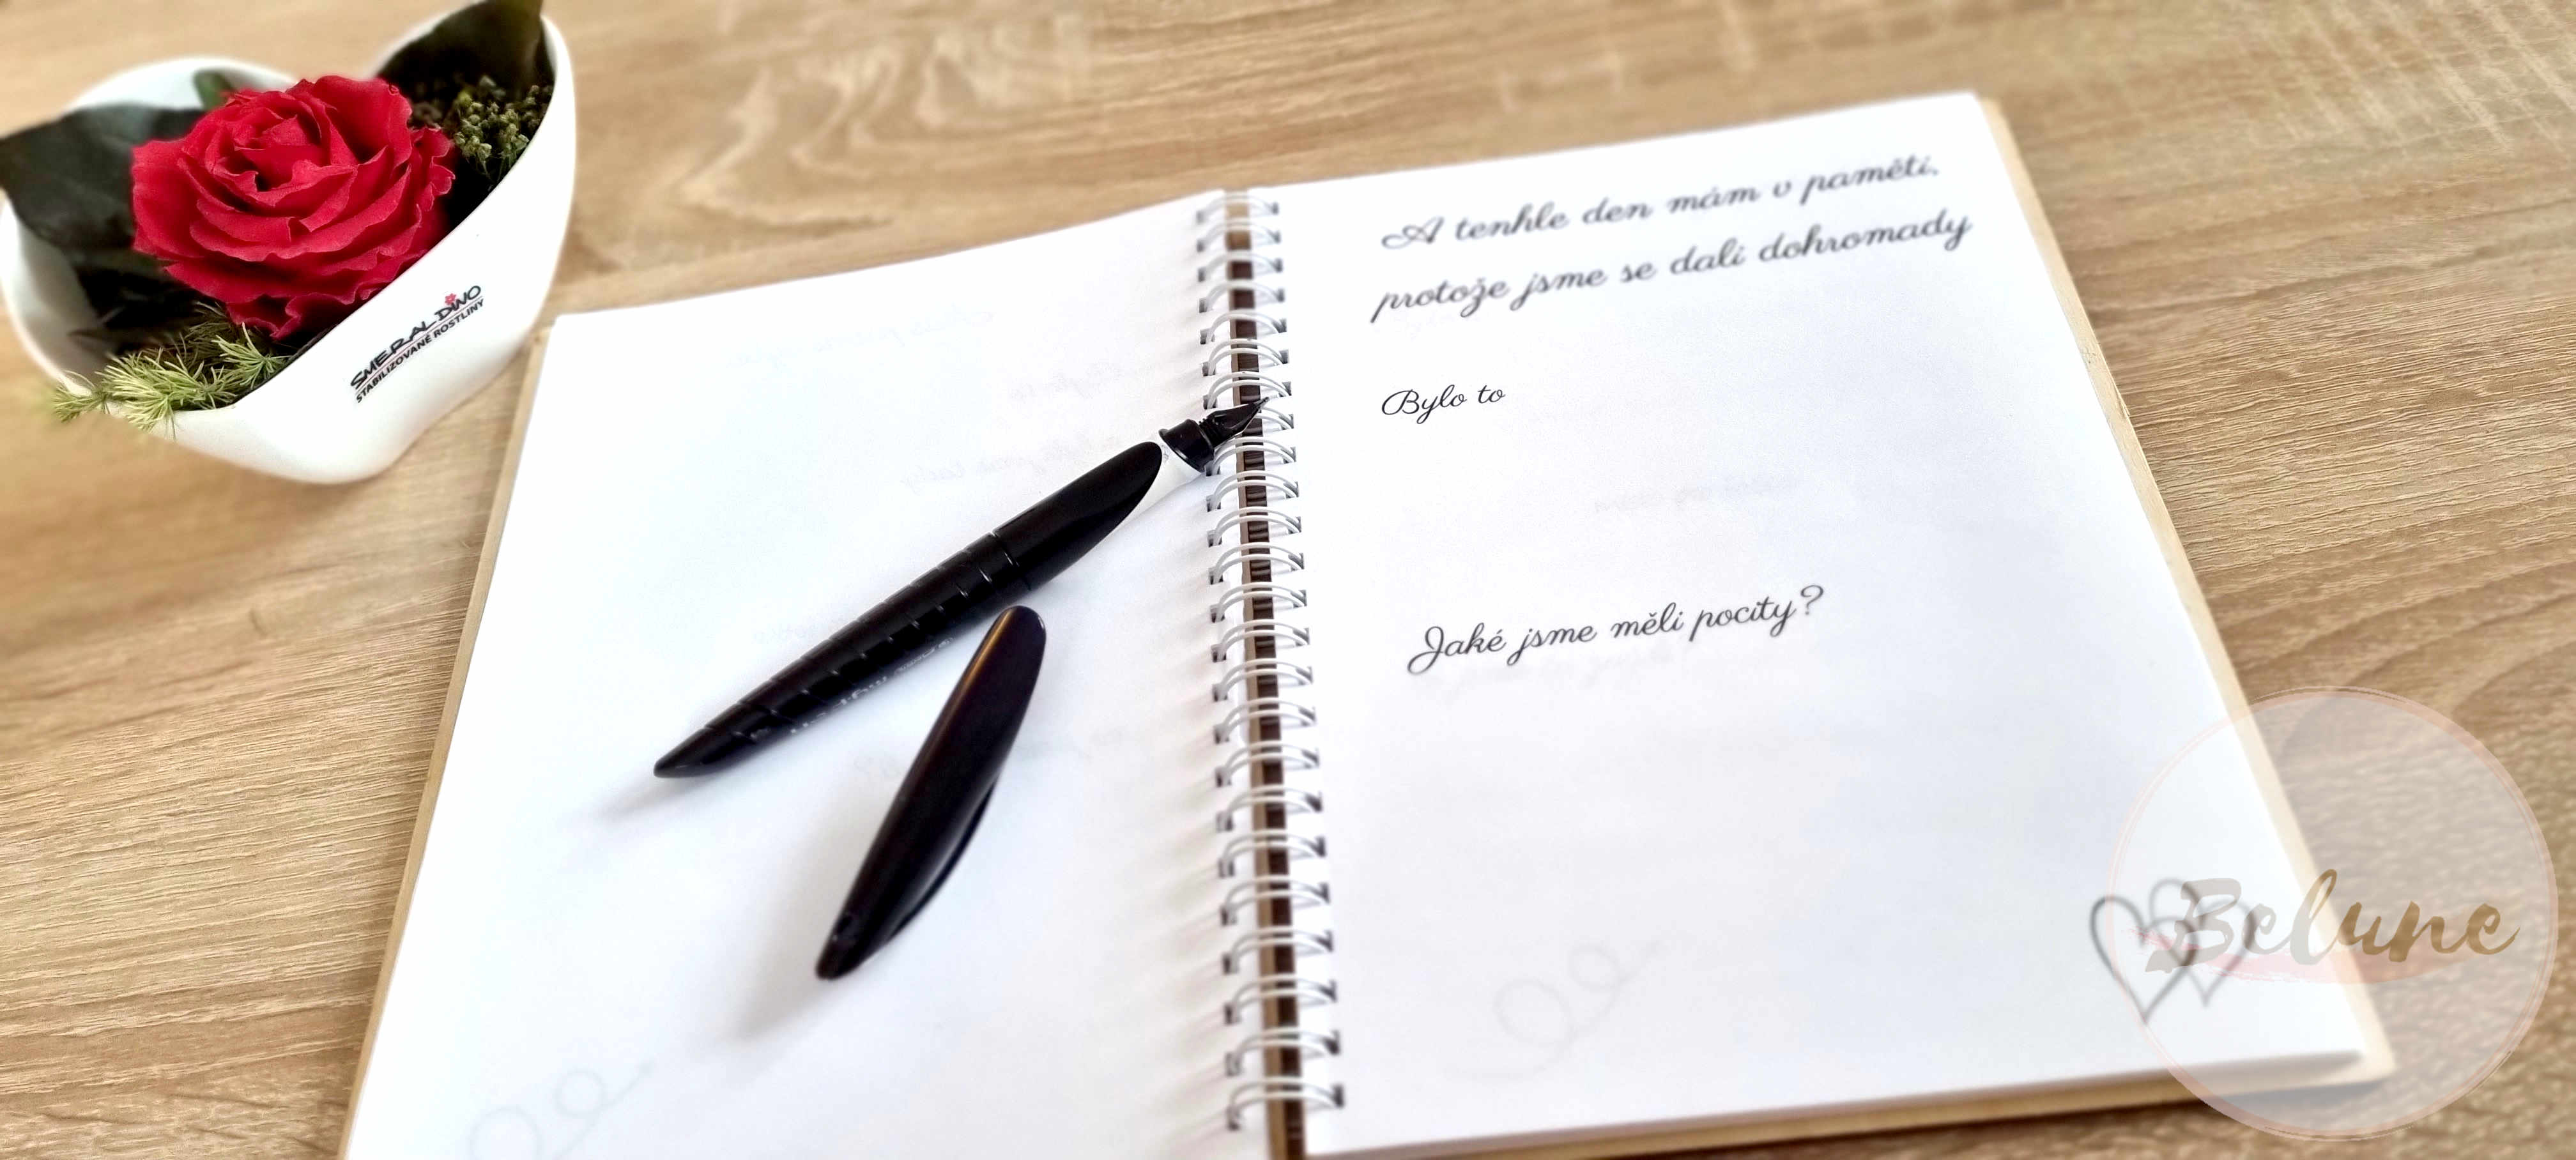 SMERALDINO
STABILIZOVANÉ ROSTLINY
A tenhle den mám v paměti,
protože jsme se dali dohromady
Bylo to
Jaké jsme měli pocity?
Belune